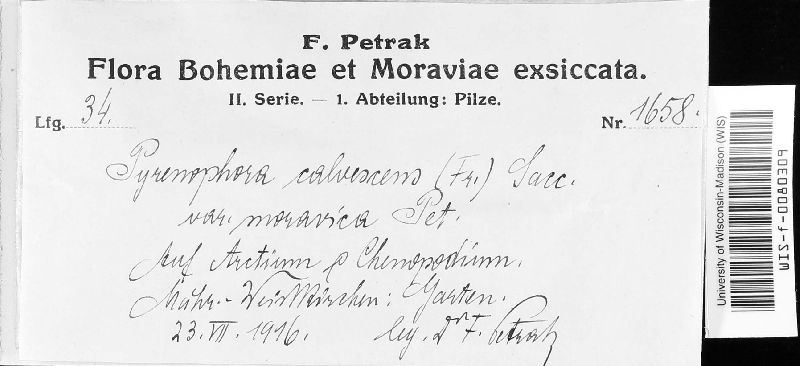 F. Petrak
Flora Bohemiae et Moraviae exsiccata.
II. Serie. — 1. Abteilung: Pilze.
Lfg. 34.
Nr. 1658.
Pyrenophora calvescens (Fr.) Sacc.
var. moravica Pet.
Auf Arctium & Chenopodium.
Mähr.-Weisskirchen: Garten.
23. VII. 1916. leg. Dr F. Petrak
University of Wisconsin-Madison (WIS)
WIS-f-0080309